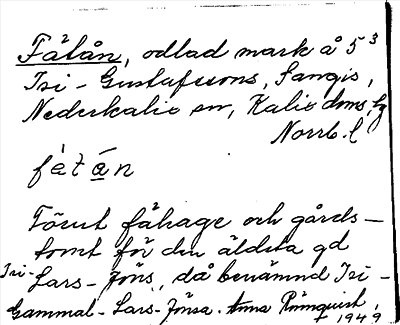 Fälån, odlad mark å 5³
Isi-Gustafssons, Sangis,
Nederkalix sn, Kalix doms. hg
Norrb. l
fä̀tán
Förut fähage och gårds-
tomt för den äldsta gd
Isi-Lars-Jöns, då benämnd Isi-
Gammal-Lars-Jönsa. Anna Rönnqvist,
1949